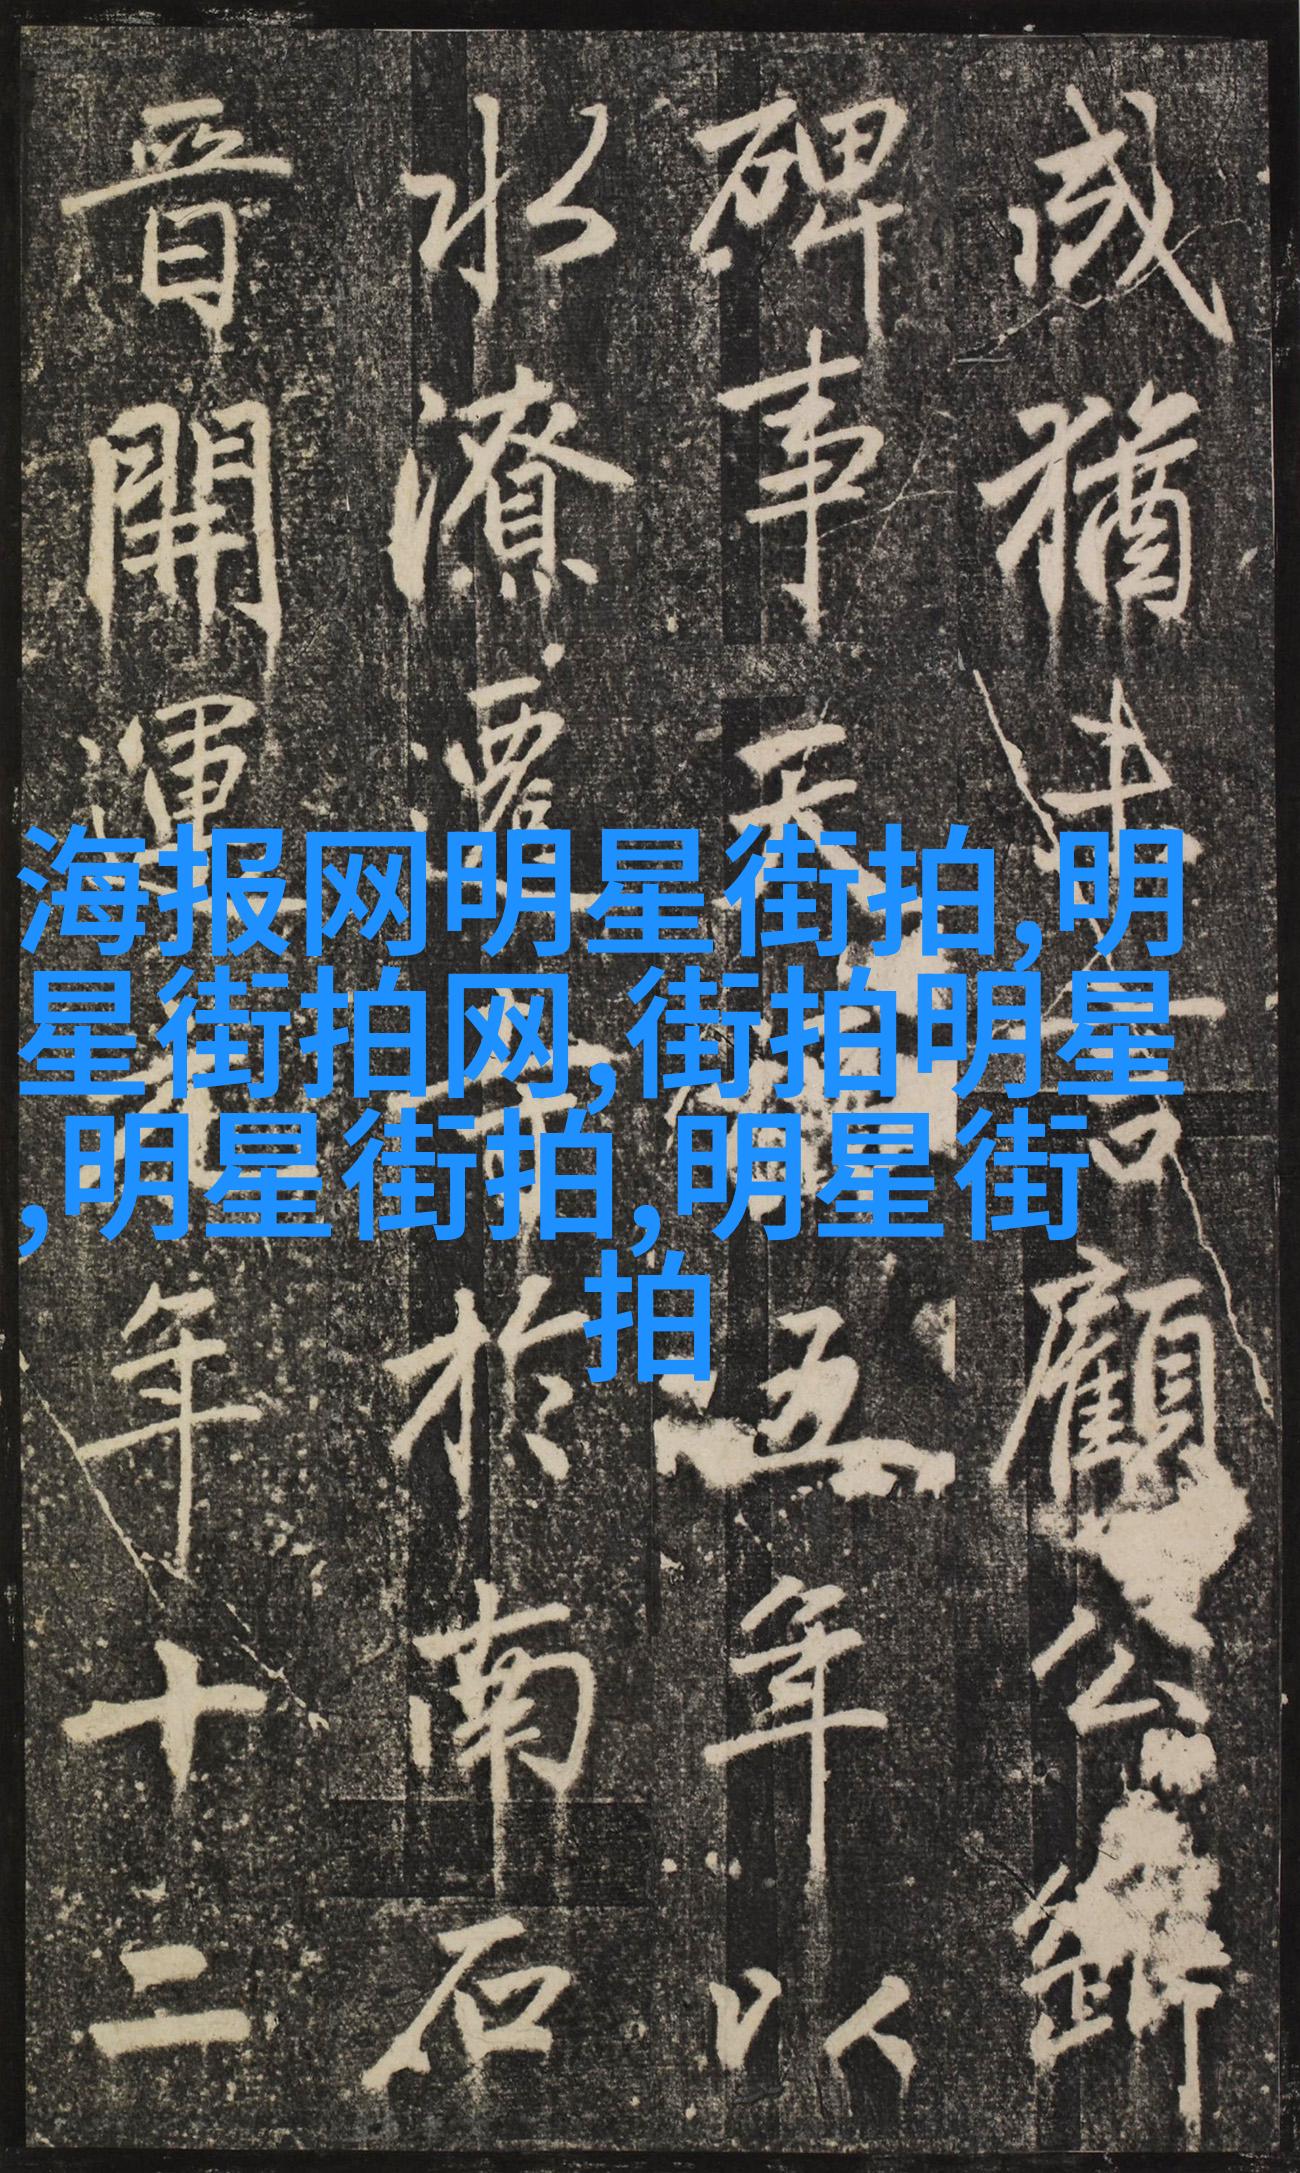 猶顧公
碑事天五年以
水潦遷於南石
晉開運年十二
海报网明星街拍,明
星街拍网,街拍明星
,明星街拍,明星街
拍